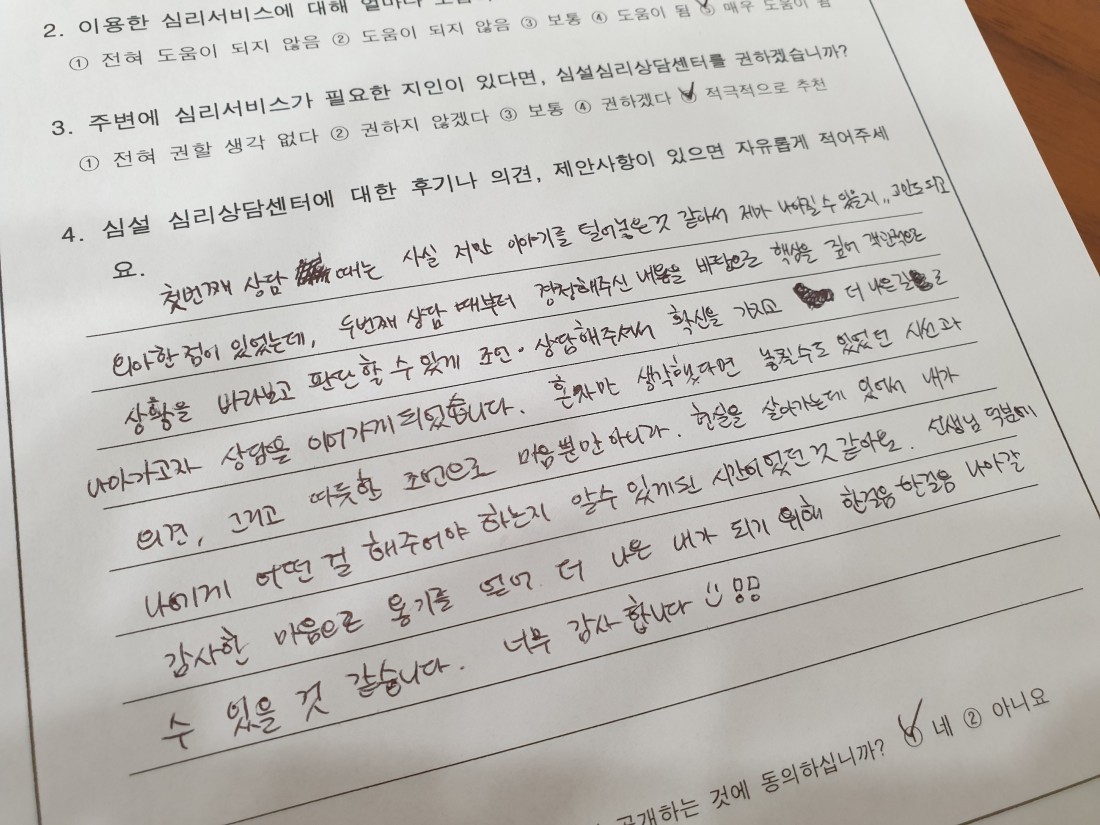 2. 이용한 심리서비스에 대해
① 전혀 도움이 되지 않음 ② 도움이 되지 않음 ③ 보통 ④ 도움이 됨 ⑤ 매우 도움이 됨
3. 주변에 심리서비스가 필요한 지인이 있다면, 심설심리상담센터를 권하겠습니까?
① 전혀 권할 생각 없다 ② 권하지 않겠다 ③ 보통 ④ 권하겠다 ⑤ 적극적으로 추천
4. 심설 심리상담센터에 대한 후기나 의견, 제안사항이 있으면 자유롭게 적어주세
요.
첫번째 상담 때는 사실 저만 이야기를 털어놓은것 같아서 제가 나아질 수 있을지,, 고민도 되고
의아한 점이 있었는데, 두번째 상담 때부터 경청해주신 내용을 바탕으로 핵심을 짚어 객관적으로
상황을 바라보고 판단할 수 있게 조언·상담해주셔서 확신을 가지고 더 나은길로
나아가고자 상담을 이어가게 되었습니다. 혼자만 생각했다면 놓칠수도 있었던 시선과
의견, 그리고 따듯한 조언으로 마음뿐만 아니라, 현실을 살아가는데 있어서 내가
나에게 어떤 걸 해주어야 하는지 알수 있게된 시간이었던것 같아요. 선생님 덕분에
감사한 마음으로 용기를 얻어 더 나은 내가 되기 위해 한걸음한걸음 나아갈
수 있을 것 같습니다. 너무 감사합니다
공개하는 것에 동의하십니까? ① 네 ② 아니요